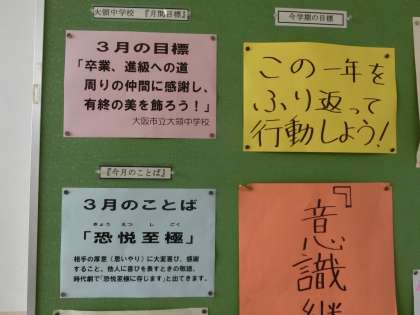 大領中学校 『月間目標』
3月の目標
「卒業、進級への道
周りの仲間に感謝し、
有終の美を飾ろう！」
大阪市立大領中学校
今学期の目標
この一年を
ふり返って
行動しよう!
『今月のことば』
3月のことば
きょう えつ し ごく
「恐悦至極」
相手の厚意（思いやり）に大変喜び、感謝
すること、他人に喜びを表すときの敬語。
時代劇で「恐悦至極に存じます」と出てきます。
『意識